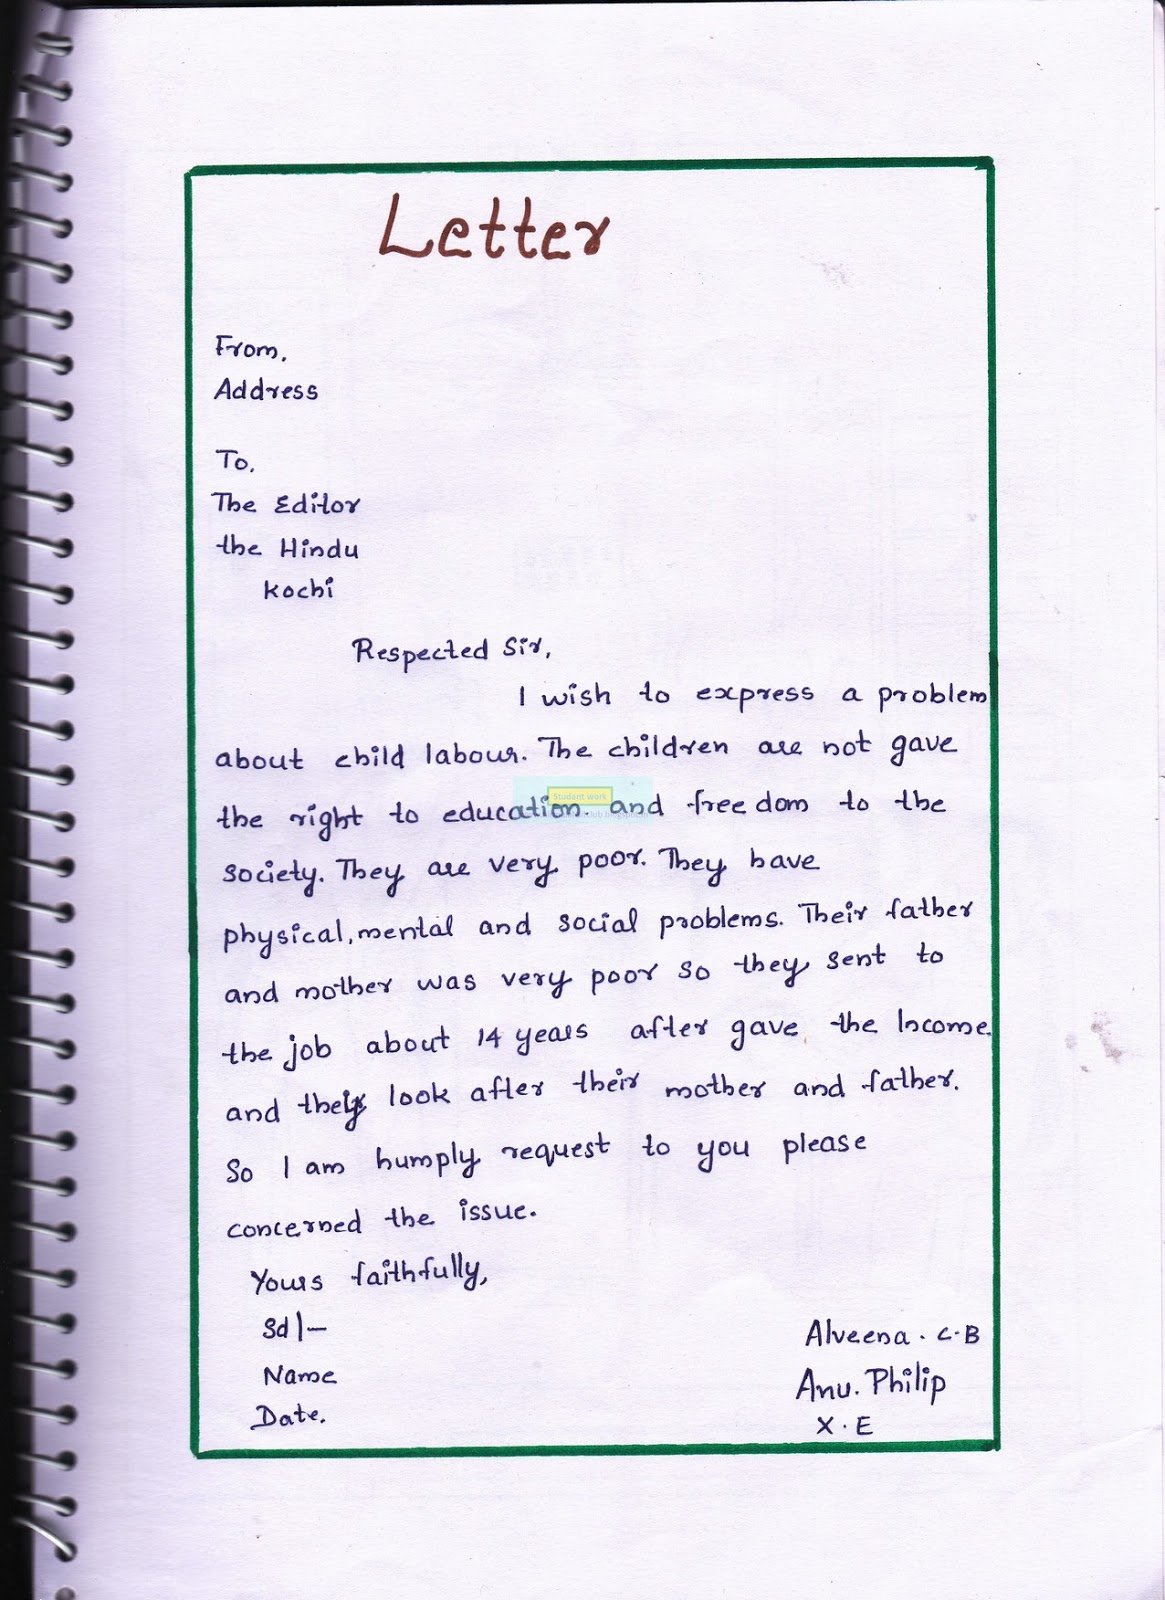 Letter
From,
Address
To,
The Editor
the Hindu
Kochi
Respected Sir,
I wish to express a problem
about child labour. The children are not gave
the right to education. and freedom to the
Student work
society. They are very poor. They have
physical, mental and social problems. Their father
and mother was very poor so they sent to
the job about 14 years after gave the Income.
and they look after their mother and father.
So I am humply request to you please
concerned the issue.
Yours faithfully,
Sd/-
Name
Date.
Alveena . C.B
Anu. Philip
X . E